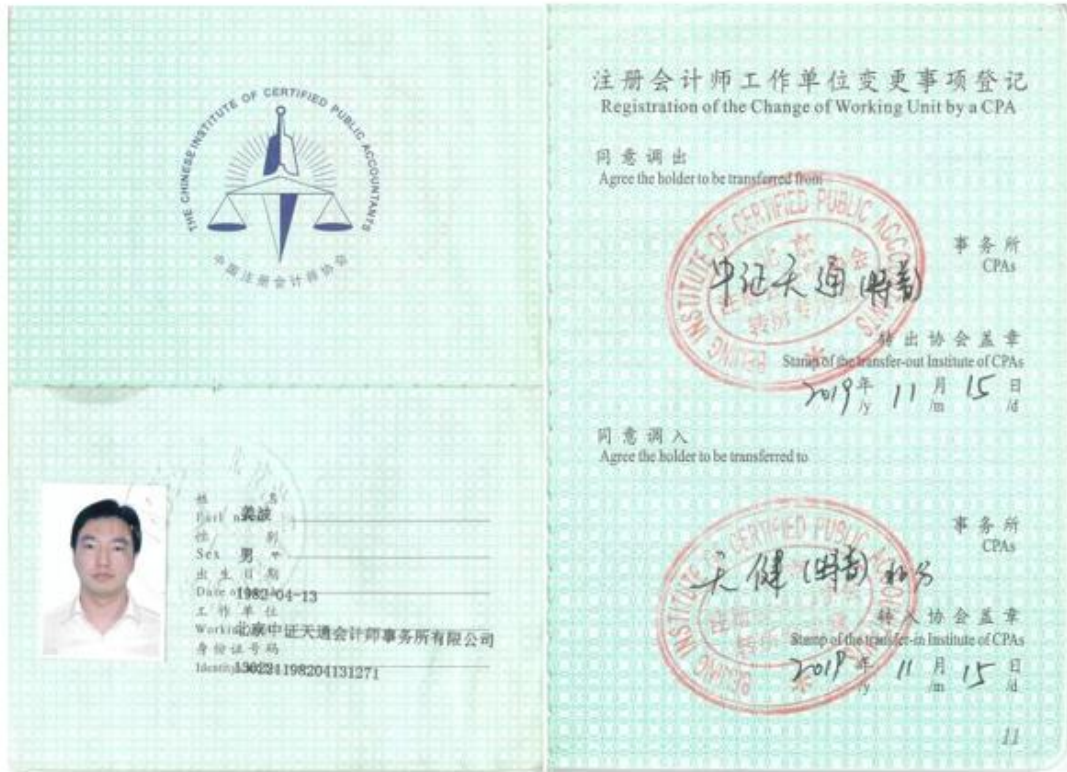 THE CHINESE INSTITUTE OF CERTIFIED PUBLIC ACCOUNTANTS
中国注册会计师协会
姓名
Full name 姜波
性别
Sex 男
出生日期
Date of 1982-04-13
工作单位
Working 北京中证天通会计师事务所有限公司
身份证号码
Identity 130221198204131271
注册会计师工作单位变更事项登记
Registration of the Change of Working Unit by a CPA
同意调出
Agree the holder to be transferred from
BEIJING INSTITUTE OF CERTIFIED PUBLIC ACCOUNTANTS
事务所
CPAs
中证天通
转出协会盖章
Stamp of the transfer-out Institute of CPAs
2019年 11月 15日
/y /m /d
同意调入
Agree the holder to be transferred to
BEIJING INSTITUTE OF CERTIFIED PUBLIC ACCOUNTANTS
事务所
CPAs
天健
转入协会盖章
Stamp of the transfer-in Institute of CPAs
2019年 11月 15日
/y /m /d
11